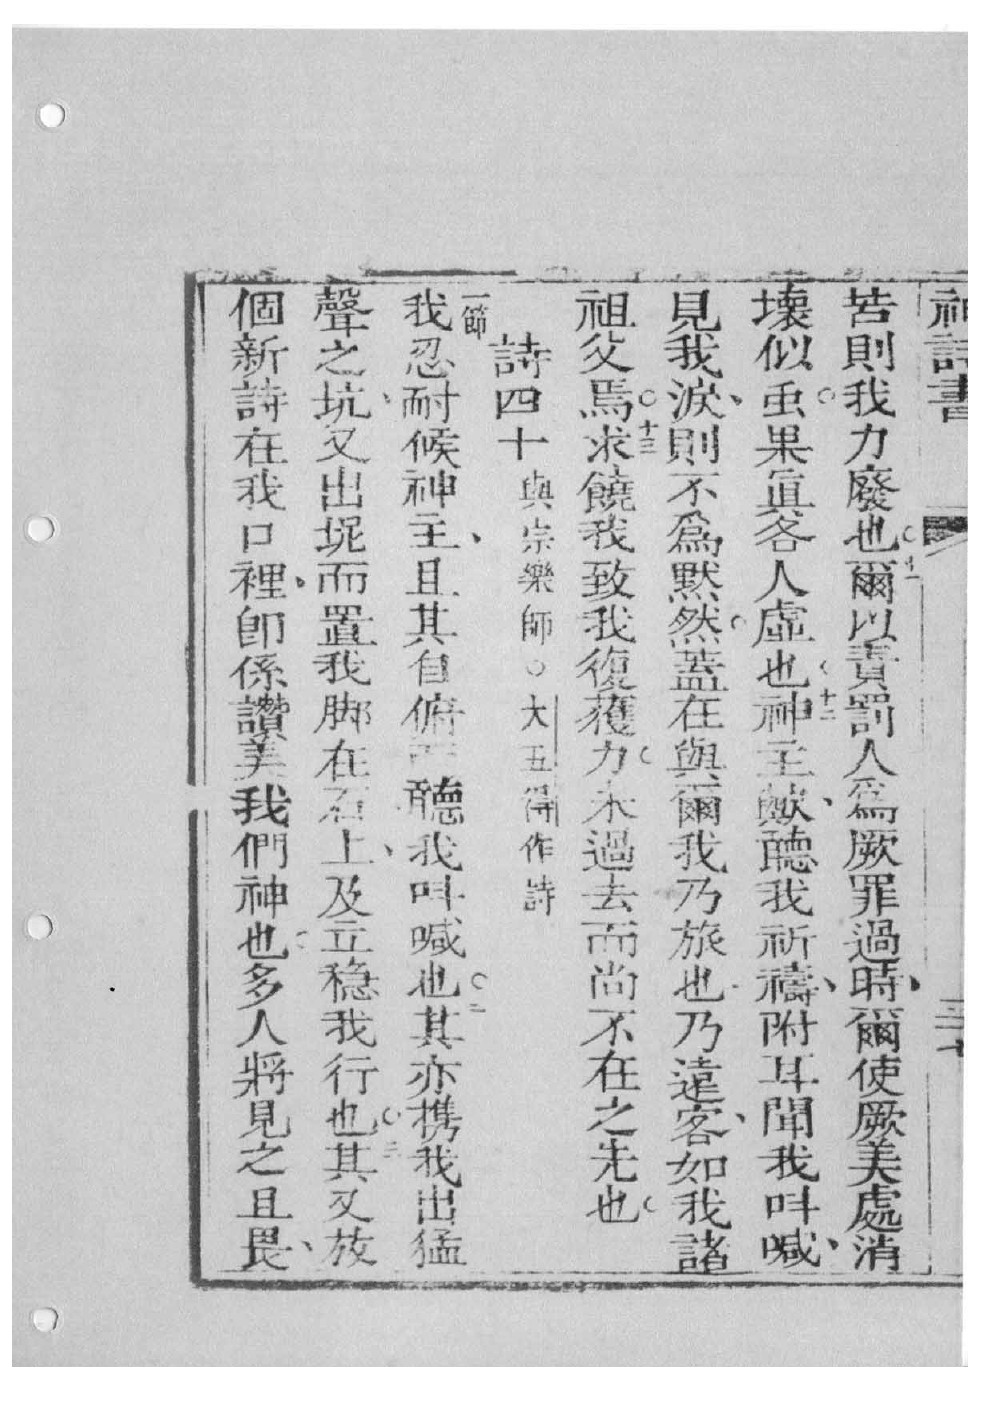 神詩書 三十七
苦則我力廢也○十一爾以責罰人爲厥罪過時、爾使厥美處消
壞似虫○果寘各人虛也○十二神主歟、聽我祈禱、附耳聞我叫喊、
見我淚、則不爲默然○蓋在與爾我乃旅也、乃遠客、如我諸
祖父焉○十三求饒我致我復獲力○未過去而尚不在之先也○
詩四十 與宗樂師○大五得作詩
一節我忍耐候神主、且其自俯而聽我叫喊也○二其亦携我出猛
聲之坑、又出坭而置我脚在石上、及立穩我行也○三其又放
個新詩在我口裡、卽係讚美我們神也○多人將見之且畏、